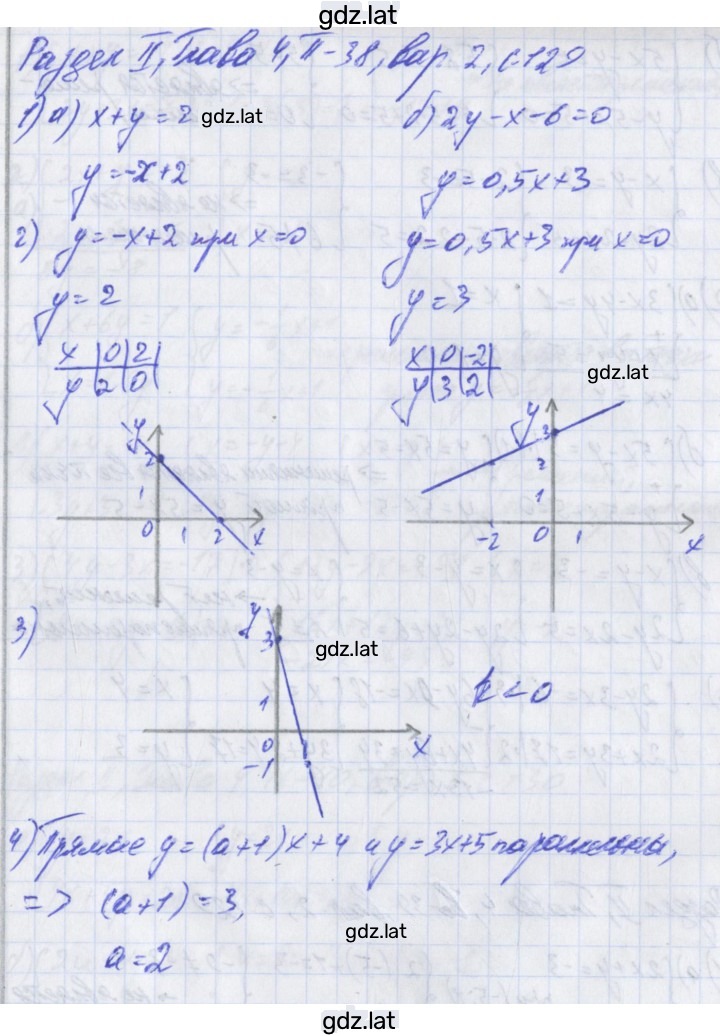 gdz.lat
Раздел II, Глава 4, П-38, вар. 2, с.129
1) а) x+y=2 gdz.lat б) 2y-x-6=0
y=-x+2 y=0,5x+3
2) y=-x+2 при x=0 y=0,5x+3 при x=0
y=2 y=3
x | 0 | 2 | x | 0 | -2 |
y | 2 | 0 | y | 3 | 2 |
gdz.lat
y 2 1 0 1 2 x
y 3 2 1 -2 0 1 x
3) y 3 1 0 1 -1 x
gdz.lat
k<0
4) Прямые y=(a+1)x+4 и y=3x+5 параллельны,
=> (a+1)=3,
gdz.lat
a=2
gdz.lat